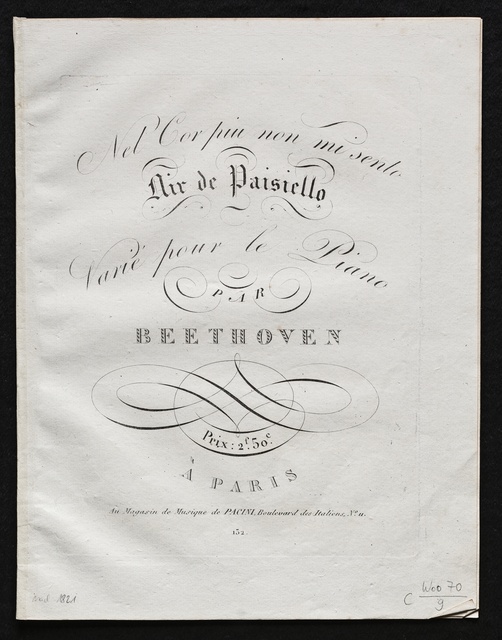 Nel Cor piu non mi sento
Air de Paisiello
Varié pour le Piano
PAR
BEETHOVEN
Prix: 2f.50c.
À PARIS
Au Magasin de Musique de PACINI, Boulevard des Italiens, No. 11.
152.
1821
C WoO 70
9